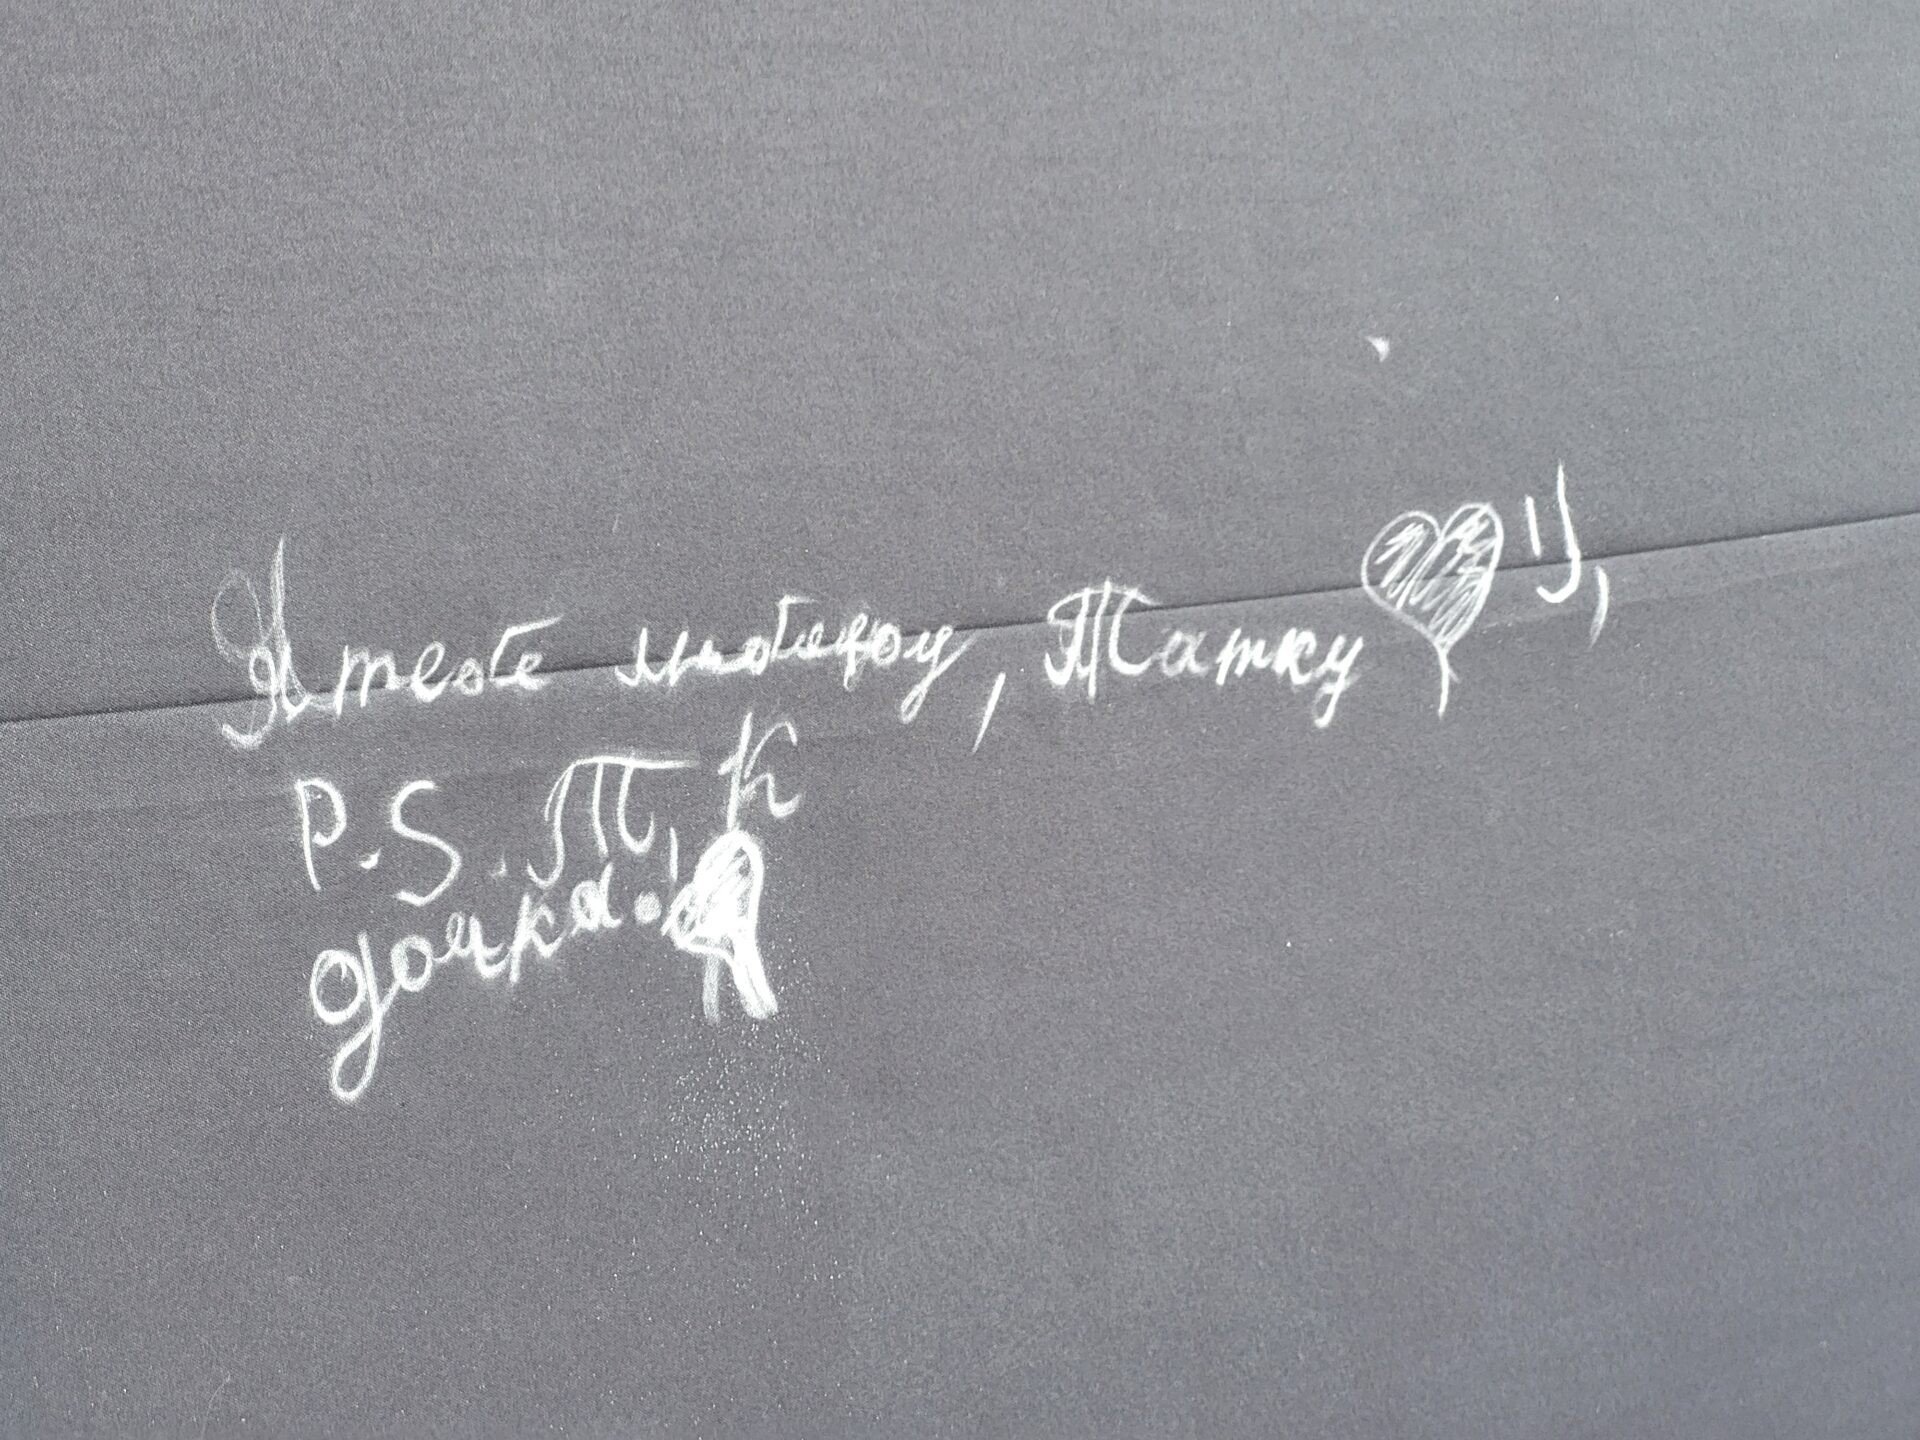 Я тебе люблю, Татку
P.S. Т, К
дочка.